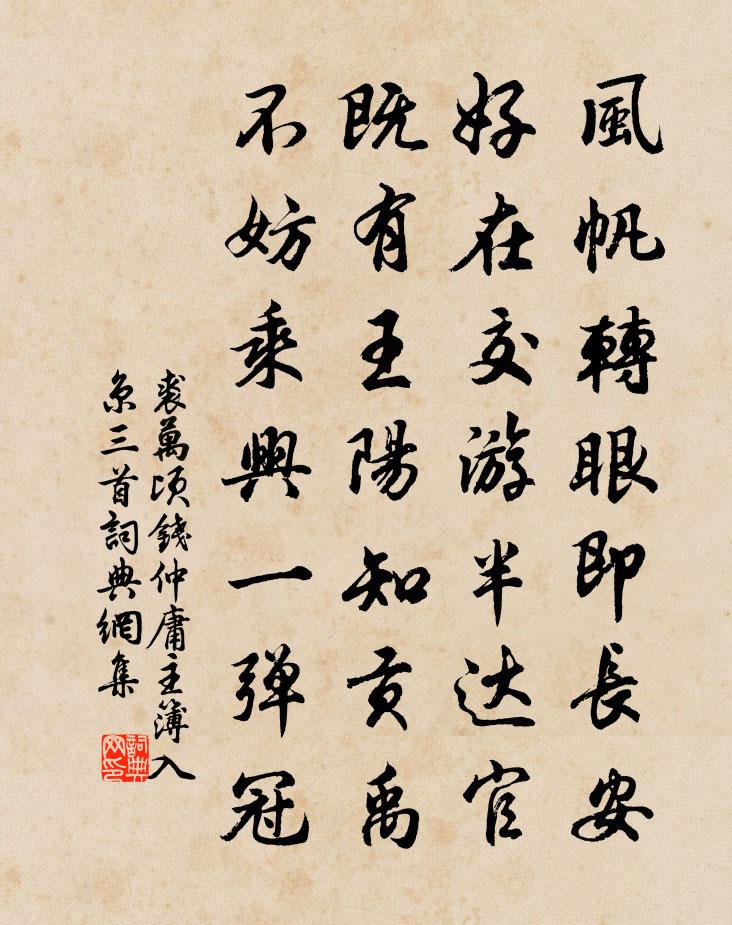 風帆轉眼即長安
好在交游半达官
既有王陽知贡禹
不妨乘興一弹冠
裘萬頃錢仲庸主簿入
京三首詞典網集
詞典
网印